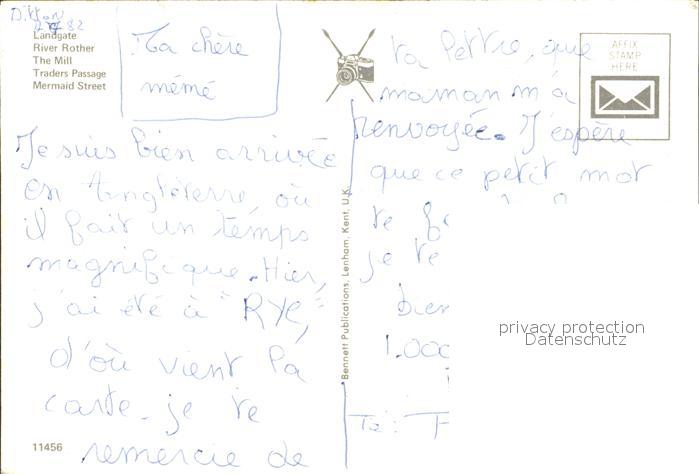 82
Landgate
River Rother
The Mill
Traders Passage
Mermaid Street
Ma chère
mémé
Je suis bien arrivée
en Angleterre, où
il fait un temps
magnifique. Hier,
j'ai été à "RYE,"
d'où vient la
carte. je te
remercie de
11456
Bennett Publications, Lenham, Kent, U.K.
ta lettre, que
maman m'a
renvoyée. J'espère
que ce petit mot
te
je te
bien
1.000
AFFIX
STAMP
HERE
privacy protection
Datenschutz